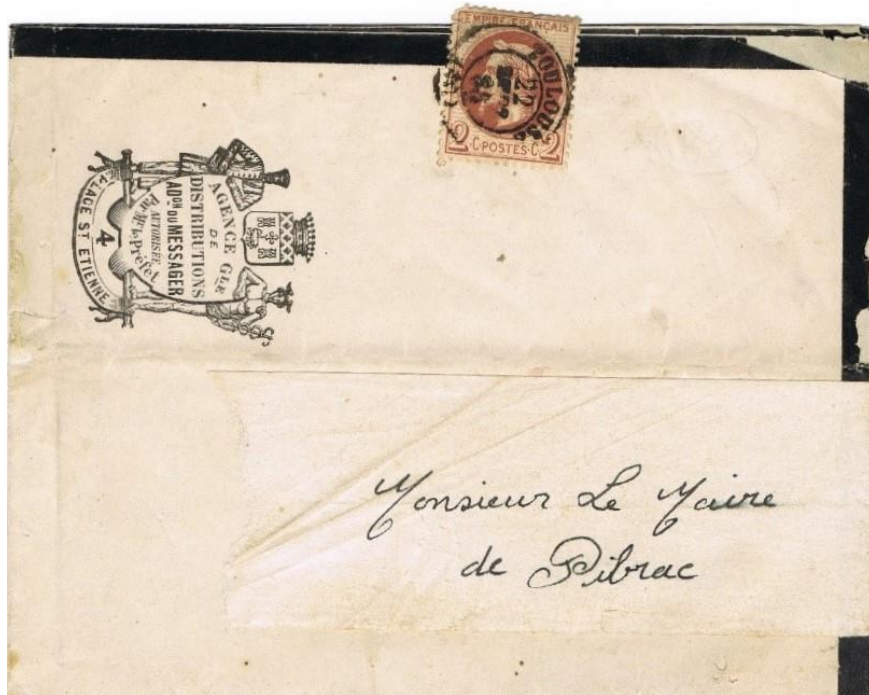 EMPIRE FRANÇAIS
TOULOUSE
22
2 C POSTES C 2
AGENCE GLE
DE
DISTRIBUTIONS
ADON DU MESSAGER
AUTORISÉE
Par Mr Le Préfet
4
PLACE ST ETIENNE
Monsieur Le Maire
de Pibrac